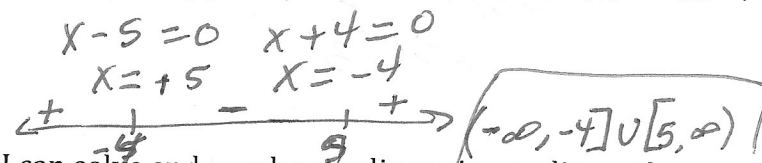 x-5=0 x+4=0
x=+5 x=-4
+ - +
-4 5 (-∞,-4]∪[5,∞)
I can solve and